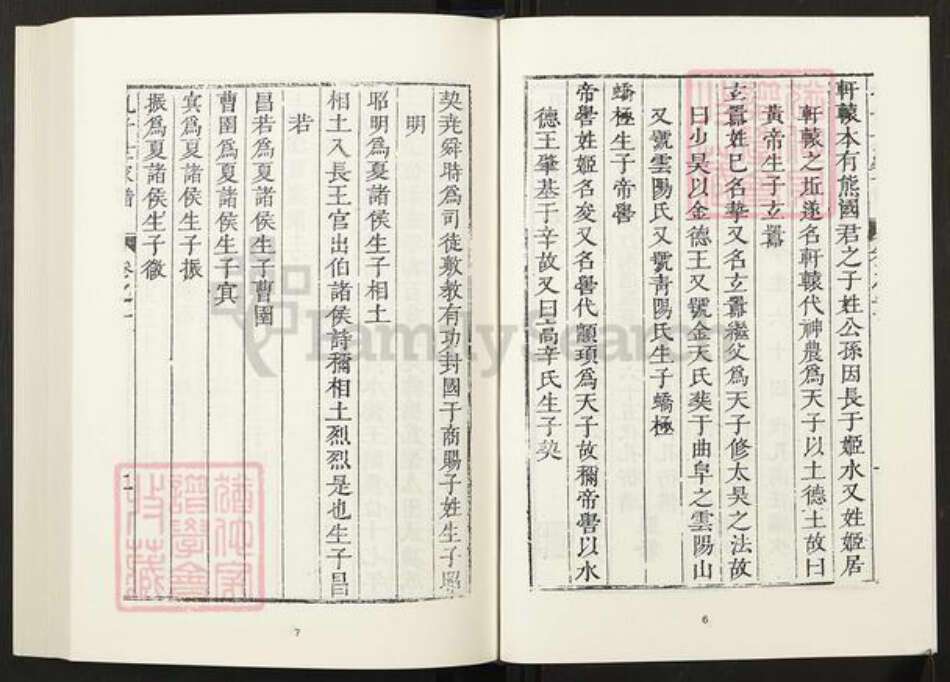 軒轅本有熊國君之子姓公孫因長于姬水又姓姬居
軒轅之坵遂名軒轅代神農爲天子以土德土故曰
黃帝生子玄囂
玄囂姓巳名摯又名玄囂繼父爲天子修太昊之法故
曰少昊以金德王又號金天氏葬于曲阜之雲陽山
又號雲陽氏又號青陽氏生子蟜極
蟜極生子帝嚳
帝嚳姓姬名夋又名嚳代顓頊爲天子故稱帝嚳以水
德王肇基于辛故又曰高辛氏生子契
6
契堯舜時爲司徒敷教有功封國于商賜子姓生子昭
明
昭明爲夏諸侯生子相土
相土入長王官出伯諸侯詩稱相土烈烈是也生子昌
若
昌若爲夏諸侯生子曹圉
曹圉爲夏諸侯生子㝠
㝠爲夏諸侯生子振
振爲夏諸侯生子微
孔子世家譜
卷之一
7
FamilySearch